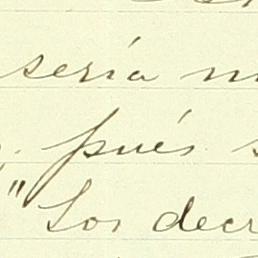 sería
pués
"Los decr